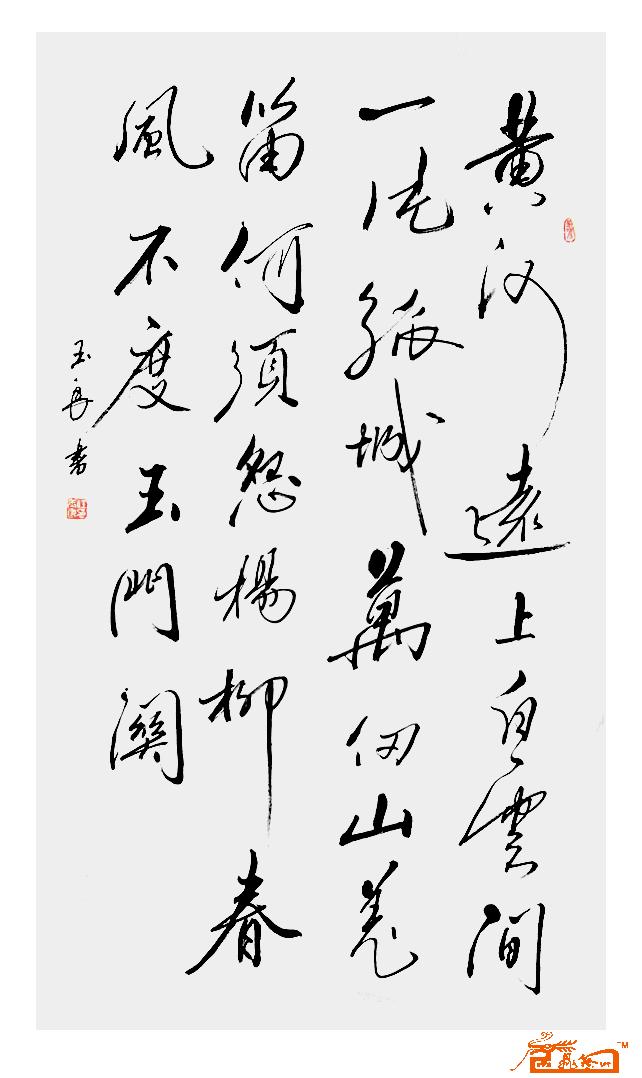 黄河遠上白雲間
一片孤城萬仞山羌
笛何須怨楊柳春
風不度玉門關
玉 書